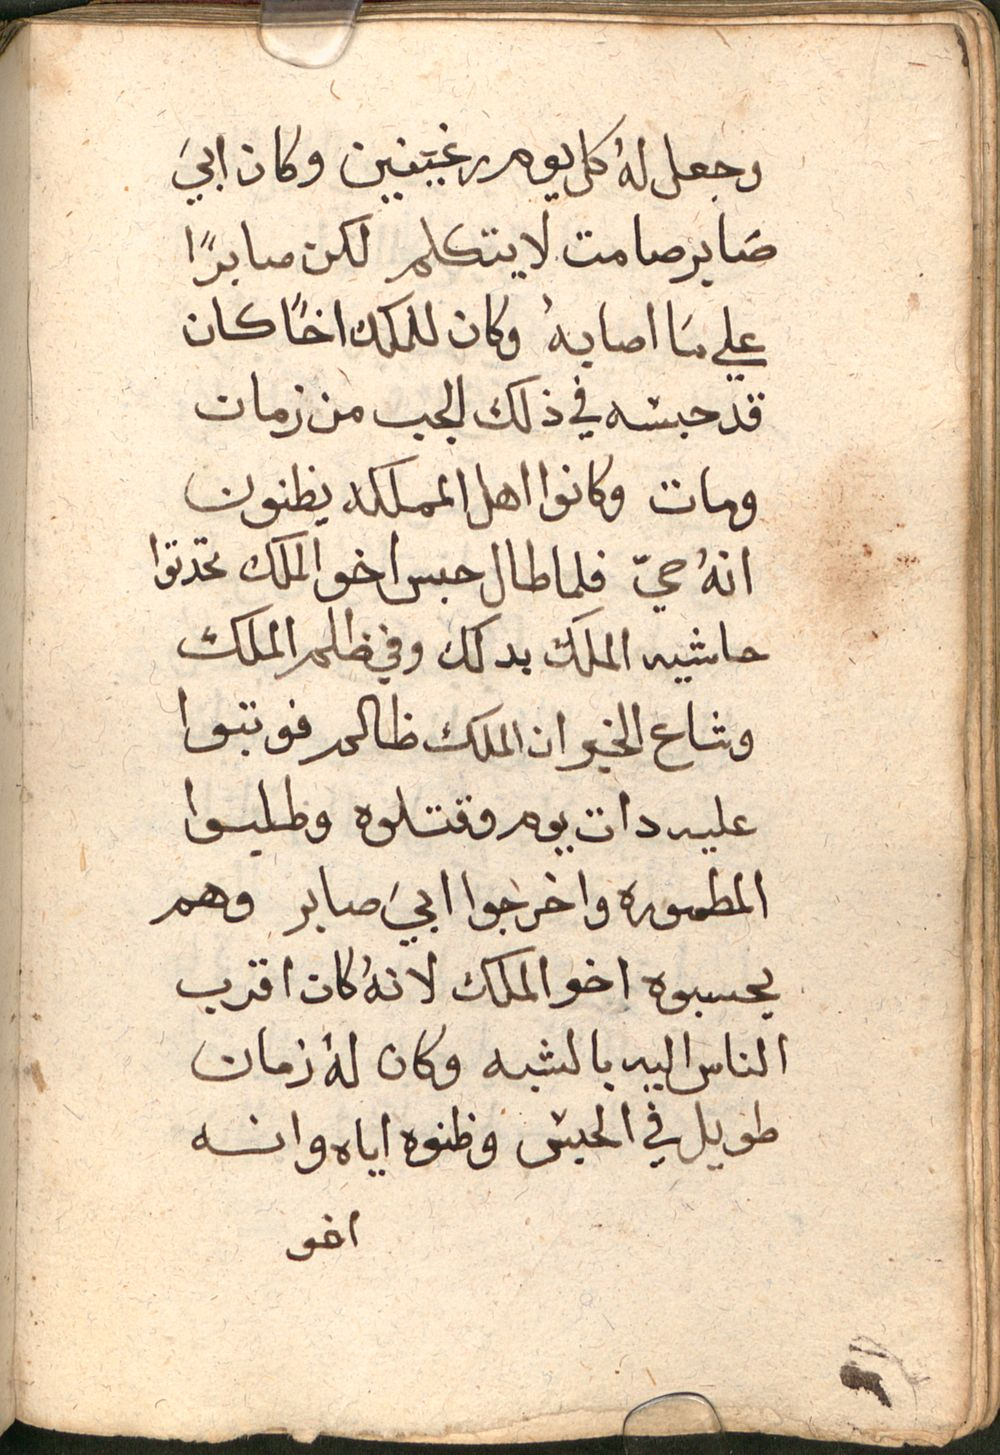 وجعل لهُ كل يوم رغيفين وكان ابيَ
صَابر صامت لا يتكلم لكن صابرًا
علي مَا اصابهُ وكان للملك اخًا كان
قد حبسه في ذلك الجب من زمان
ومات وكانوا اهل المملكه يظنون
انهُ حيّ فلما طال حبس اخو الملك تحدتوا
حاشيه الملك بدلك وفي ظلم الملك
وشاع الخبر ان الملك ظالم فوتبوا
عليه دات يوم وقتلوه وطلبوا
المطموره واخرجوا ابيَ صابر وهم
يحسبوه اخو الملك لانهُ كان اقرب
الناس اليه بالشبه وكان لهُ زمان
طويل في الحبس وظنوه اياه وانه
اخو